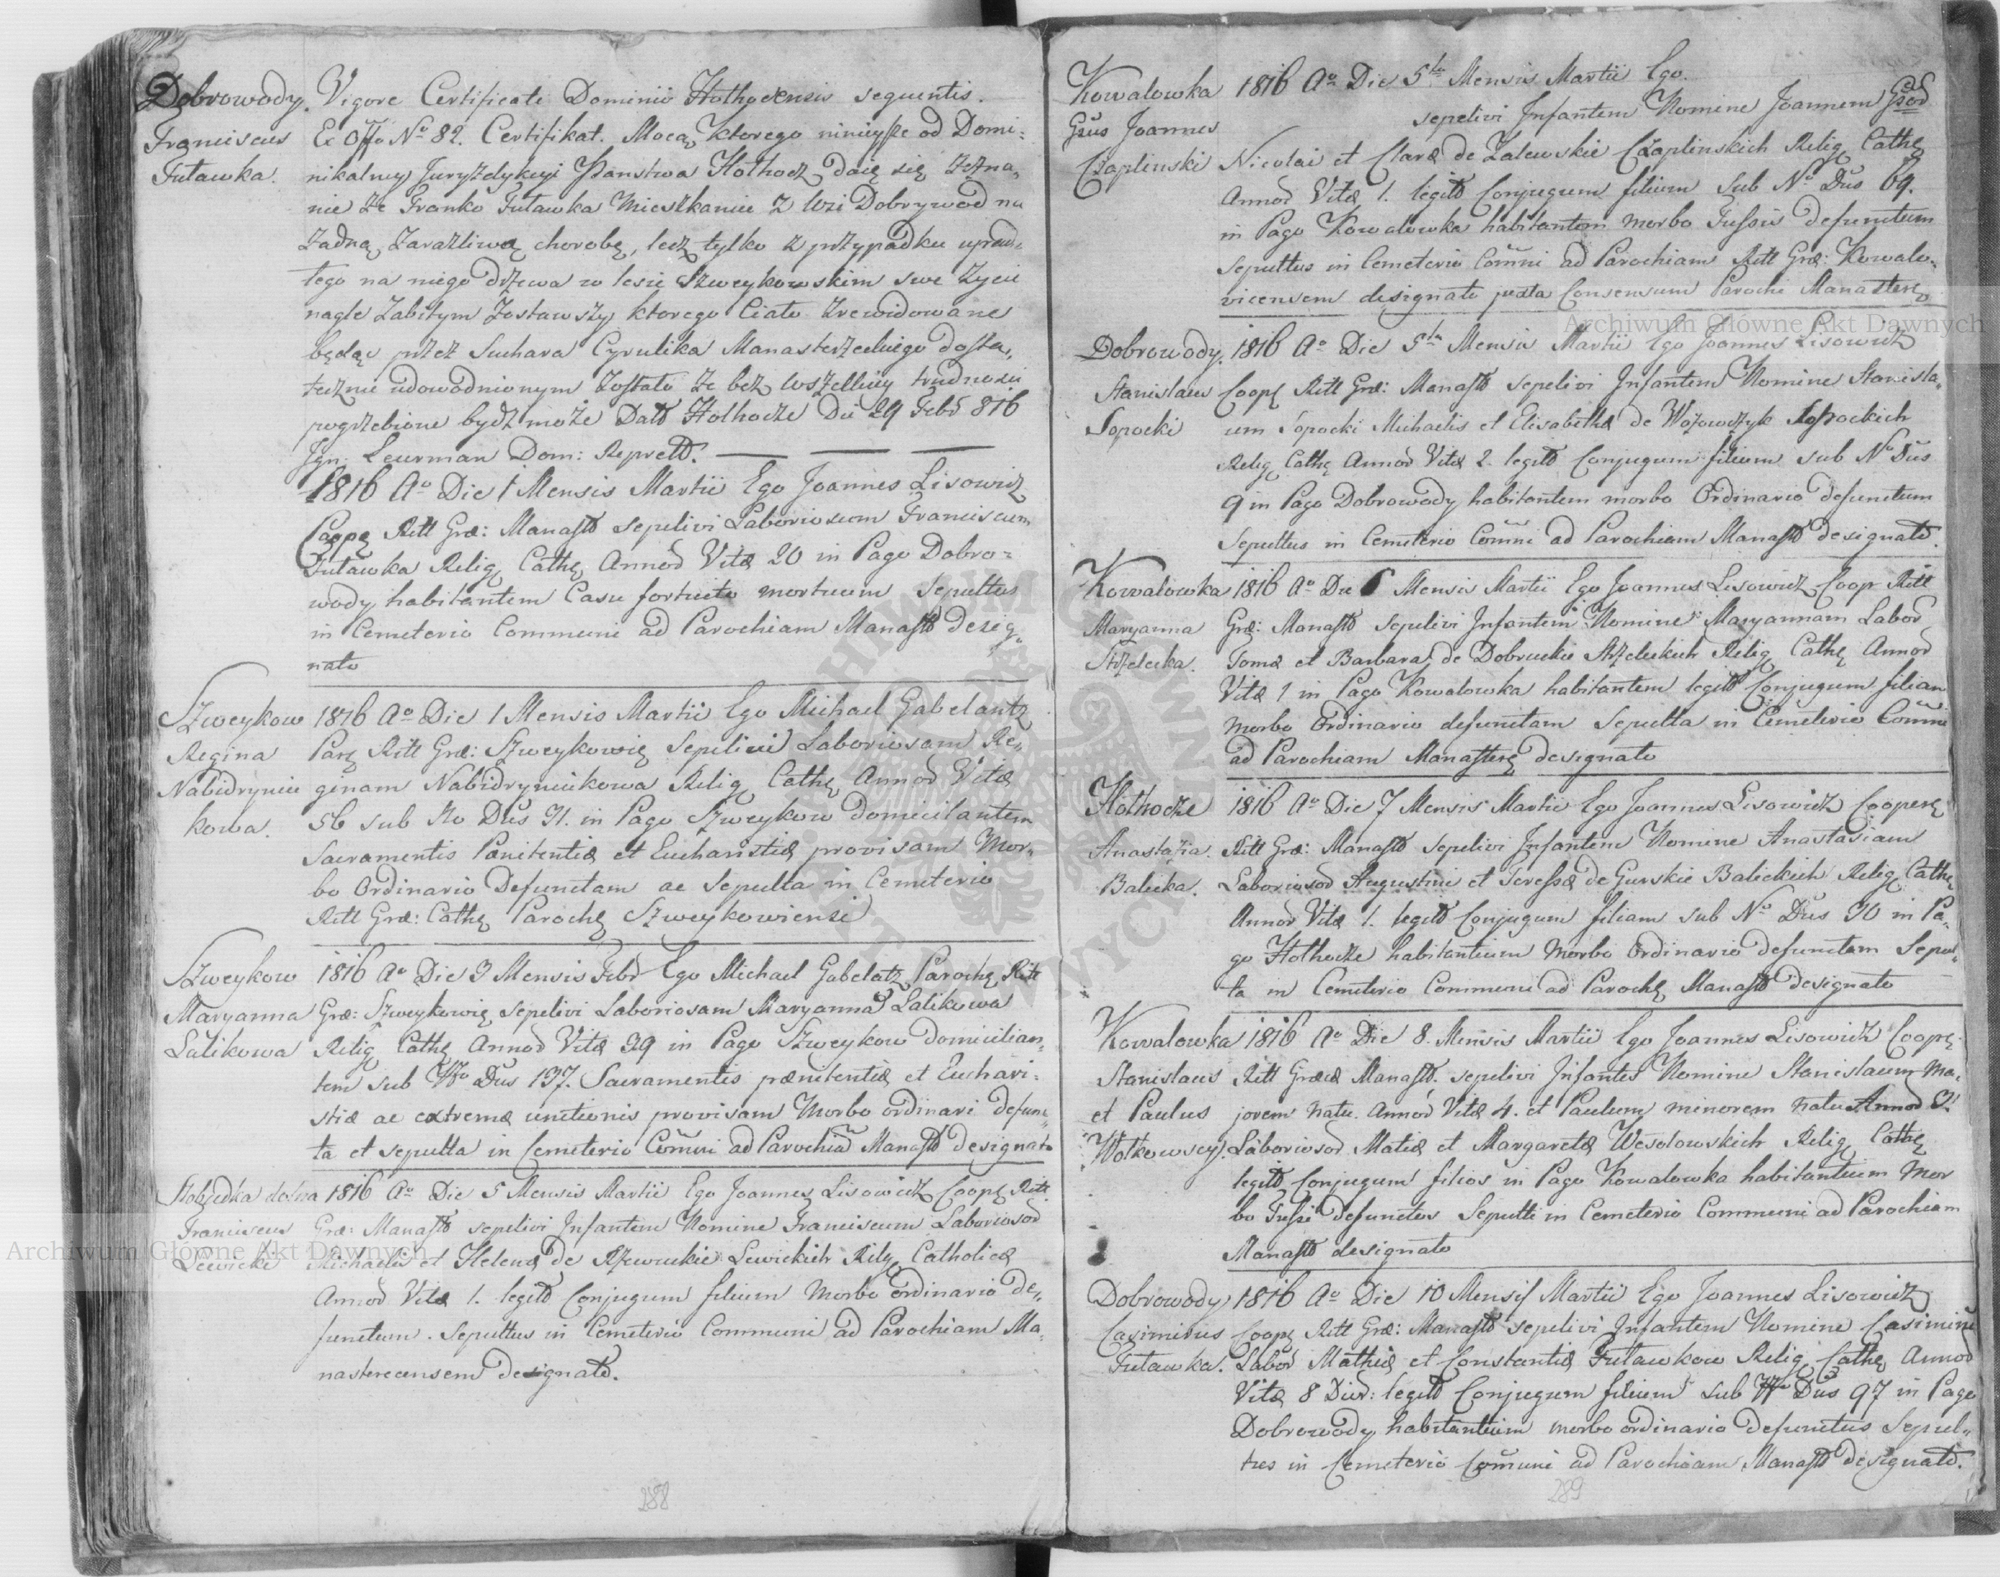 Dobrowody. Vigore Certificati Dominii Hołhocensis sequentis.
Franciscus Ex Offo No 82. Certifikat. Mocą ktorego ninieysze od Domi:
Tuławka. nikalney Juryzdykcyi Państwa Hołhocz daię się zezna,
nie że Franko Tuławka Mieszkaniec z Wsi Dobrywod na
żadną zaraźliwą chorobę, lecz tylko z przypadku upad:
łego na niego drzewa w lesie Szweykowskim swe życie
nagle Zabitym Zostawszy ktorego Ciało Zrewidowane
będąc przez Suchara Cyrulika Manasterzeckiego dosta,
tecznie udowodnionym Zostało że bez wszelkiey trudności
pogrzebione bydź może Datt Hołhocze Die 29 Febr 816
Ign: Leurman Dom: Reprett.
1816 Ao Die 1 Mensis Martii Ego Joannes Lisowicz
Coope Ritt Græ: Manastt sepelivi Laboriosum Franciscum
Tuławka Relig Cathe Annor Vitæ 20 in Pago Dobro=
wody habitantem Casu fortuito mortuum Sepultus
in Cemeterio Communi ad Parochiam Manastt desig,
nato
Szweykow 1816 Ao Die 1 Mensis Martii Ego Michael Gabelantz
Regina Pare Ritt Græ: Szweykowie Sepelivi Laboriosam Re,
Nabidryniu ginam Nabidryniukowa Relig Cathe Annor Vitæ
kowa. 56 sub No Dus 31. in Pago Szweykow domicilantem
Sacramentis Pænitentiæ et Eucharistiæ provisam Mor,
bo Ordinario Defunctam ac Sepulta in Cemeterio
Ritt Græ: Cathe Paroche Szweykowiensi
Szweykow 1816 Ao Die 3 Mensis Febr Ego Michael Gabelatz Paroche Ritt
Maryanna Græ: Szweykowie sepelivi Laboriosam Maryanna Lalikowa
Lalikowa Relig Cathe Annor Vitæ 39 in Pago Szweykow domicilian,
tem sub No Dus 137. Sacramentis pænitentiæ et Euchari:
stiæ ac extremæ unctionis provisam Morbo ordinari defun,
ta et sepulta in Cemeterio Comni ad Parochia Manastt designato
Slobudka dolna 1816 Ao Die 5 Mensis Martii Ego Joannes Lisowicz Coope Ritt
Franciscus Græ: Manastt sepelivi Infantem Nomine Franciscum Laboriosor
Lewicki Michaelis et Helenæ de Rzewuckie Lewickich Relig Catholicæ
Annor Vitæ 1. legitt Conjugum filium Morbo ordinario de,
functum. Sepultus in Cemeterio Communi ad Parochiam Ma,
nasterecensem designatt.
288
Kowalowka 1816 Ao Die 5ta Mensis Martii Ego
Gsus Joannes sepelivi Infantem Nomine Joannem Gsor
Czaplinski Nicolai et Claræ de Zalewskie Czaplinskich Relig Cathe
Annor Vitæ 1. legitt Conjugum filium Sub No Dus 69.
in Pago Kowalowka habitantem morbo Tussis defunctum
Sepultus in Cemeterio Comni ad Parochiam Ritt Græ: Kowalo,
vicensem designato juxta Consensum Parochi Manastere
Dobrowody. 1816 Ao Die 5ta Mensis Martii Ego Joannes Lisowicz
Stanislaw Coope Ritt Græ: Manastt sepelivi Infantem Nomine Stanisla,
Sopocki um Sopocki Michaelis et Elisabethæ de Wożowczyk Sopockich
Relig Cathe Annor Vitæ 2. legitt Conjugum filium sub No Dus
9 in Pago Dobrowody habitantem morbo Ordinario defunctum
Sepultus in Cemeterio Comni ad Parochiam Manastt designato.
Kowalowka 1816 Ao Die 6 Mensis Martii Ego Joannes Lisowicz Coop Ritt
Maryanna Græ: Manastt sepelivi Infantem Nomine Maryannam Labor
Strzelecka. Tomæ et Barbara de Dobruckie Strzeleckich Relig Cathe Annor
Vitæ 1 in Pago Kowalowka habitantem legitt Conjugum filian
morbo Ordinario defunctam Sepulta in Cemeterio Comni
ad Parochiam Manastere designato
Hołhocze 1816 Ao Die 7 Mensis Martii Ego Joannes Lisowicz Coopere
Anastazia. Ritt Græ: Manastt sepelivi Infantem Nomine Anastasiam
Balicka. Laboriosor Augustini et Teressæ de Gurskie Balickich Relig Cathe
Annor Vitæ 1. legitt Conjugum filiam sub No Dus 30 in Pa,
go Hołhocze habitantium Morbo Ordinario defunctam Sepul,
ta in Cemeterio Communi ad Paroche Manastt designato
Kowalowka 1816 Ao Die 8. Mensis Martii Ego Joannes Lisowicz Coope.
Stanislaus Ritt Græcæ Manastt. sepelivi Infantes Nomine Stanislaum Ma,
et Paulus jorem natu Annor Vitæ 4. et Paulum minorem natu Annor 3.
Wołkowscy. Laboriosor Matiæ et Margaretæ Wesołowskich Relig Cathe
legitt Conjugum filios in Pago Kowalowka habitantium Mor
bo Tussi defunctos Sepulti in Cemeterio Communi ad Parochiam
Manastt designato
Dobrowody 1816 Ao Die 10 Mensis Martii Ego Joannes Lisowicz
Casimirus Coope Ritt Græ: Manastt sepelivi Infantem Nomine Casimirũ
Tuławka. Labor Mathiæ et Constantiæ Tuławkow Relig Cathe Annor
Vitæ 8 Dier: legitt Conjugum filium sub No Dus 97 in Pago
Dobrowody habitantium morbo ordinario defunctus Sepul,
tus in Cemeterio Comuni ad Parochiam Manastt designato.
289
Archiwum Główne Akt Dawnych
Archiwum Główne Akt Dawnych